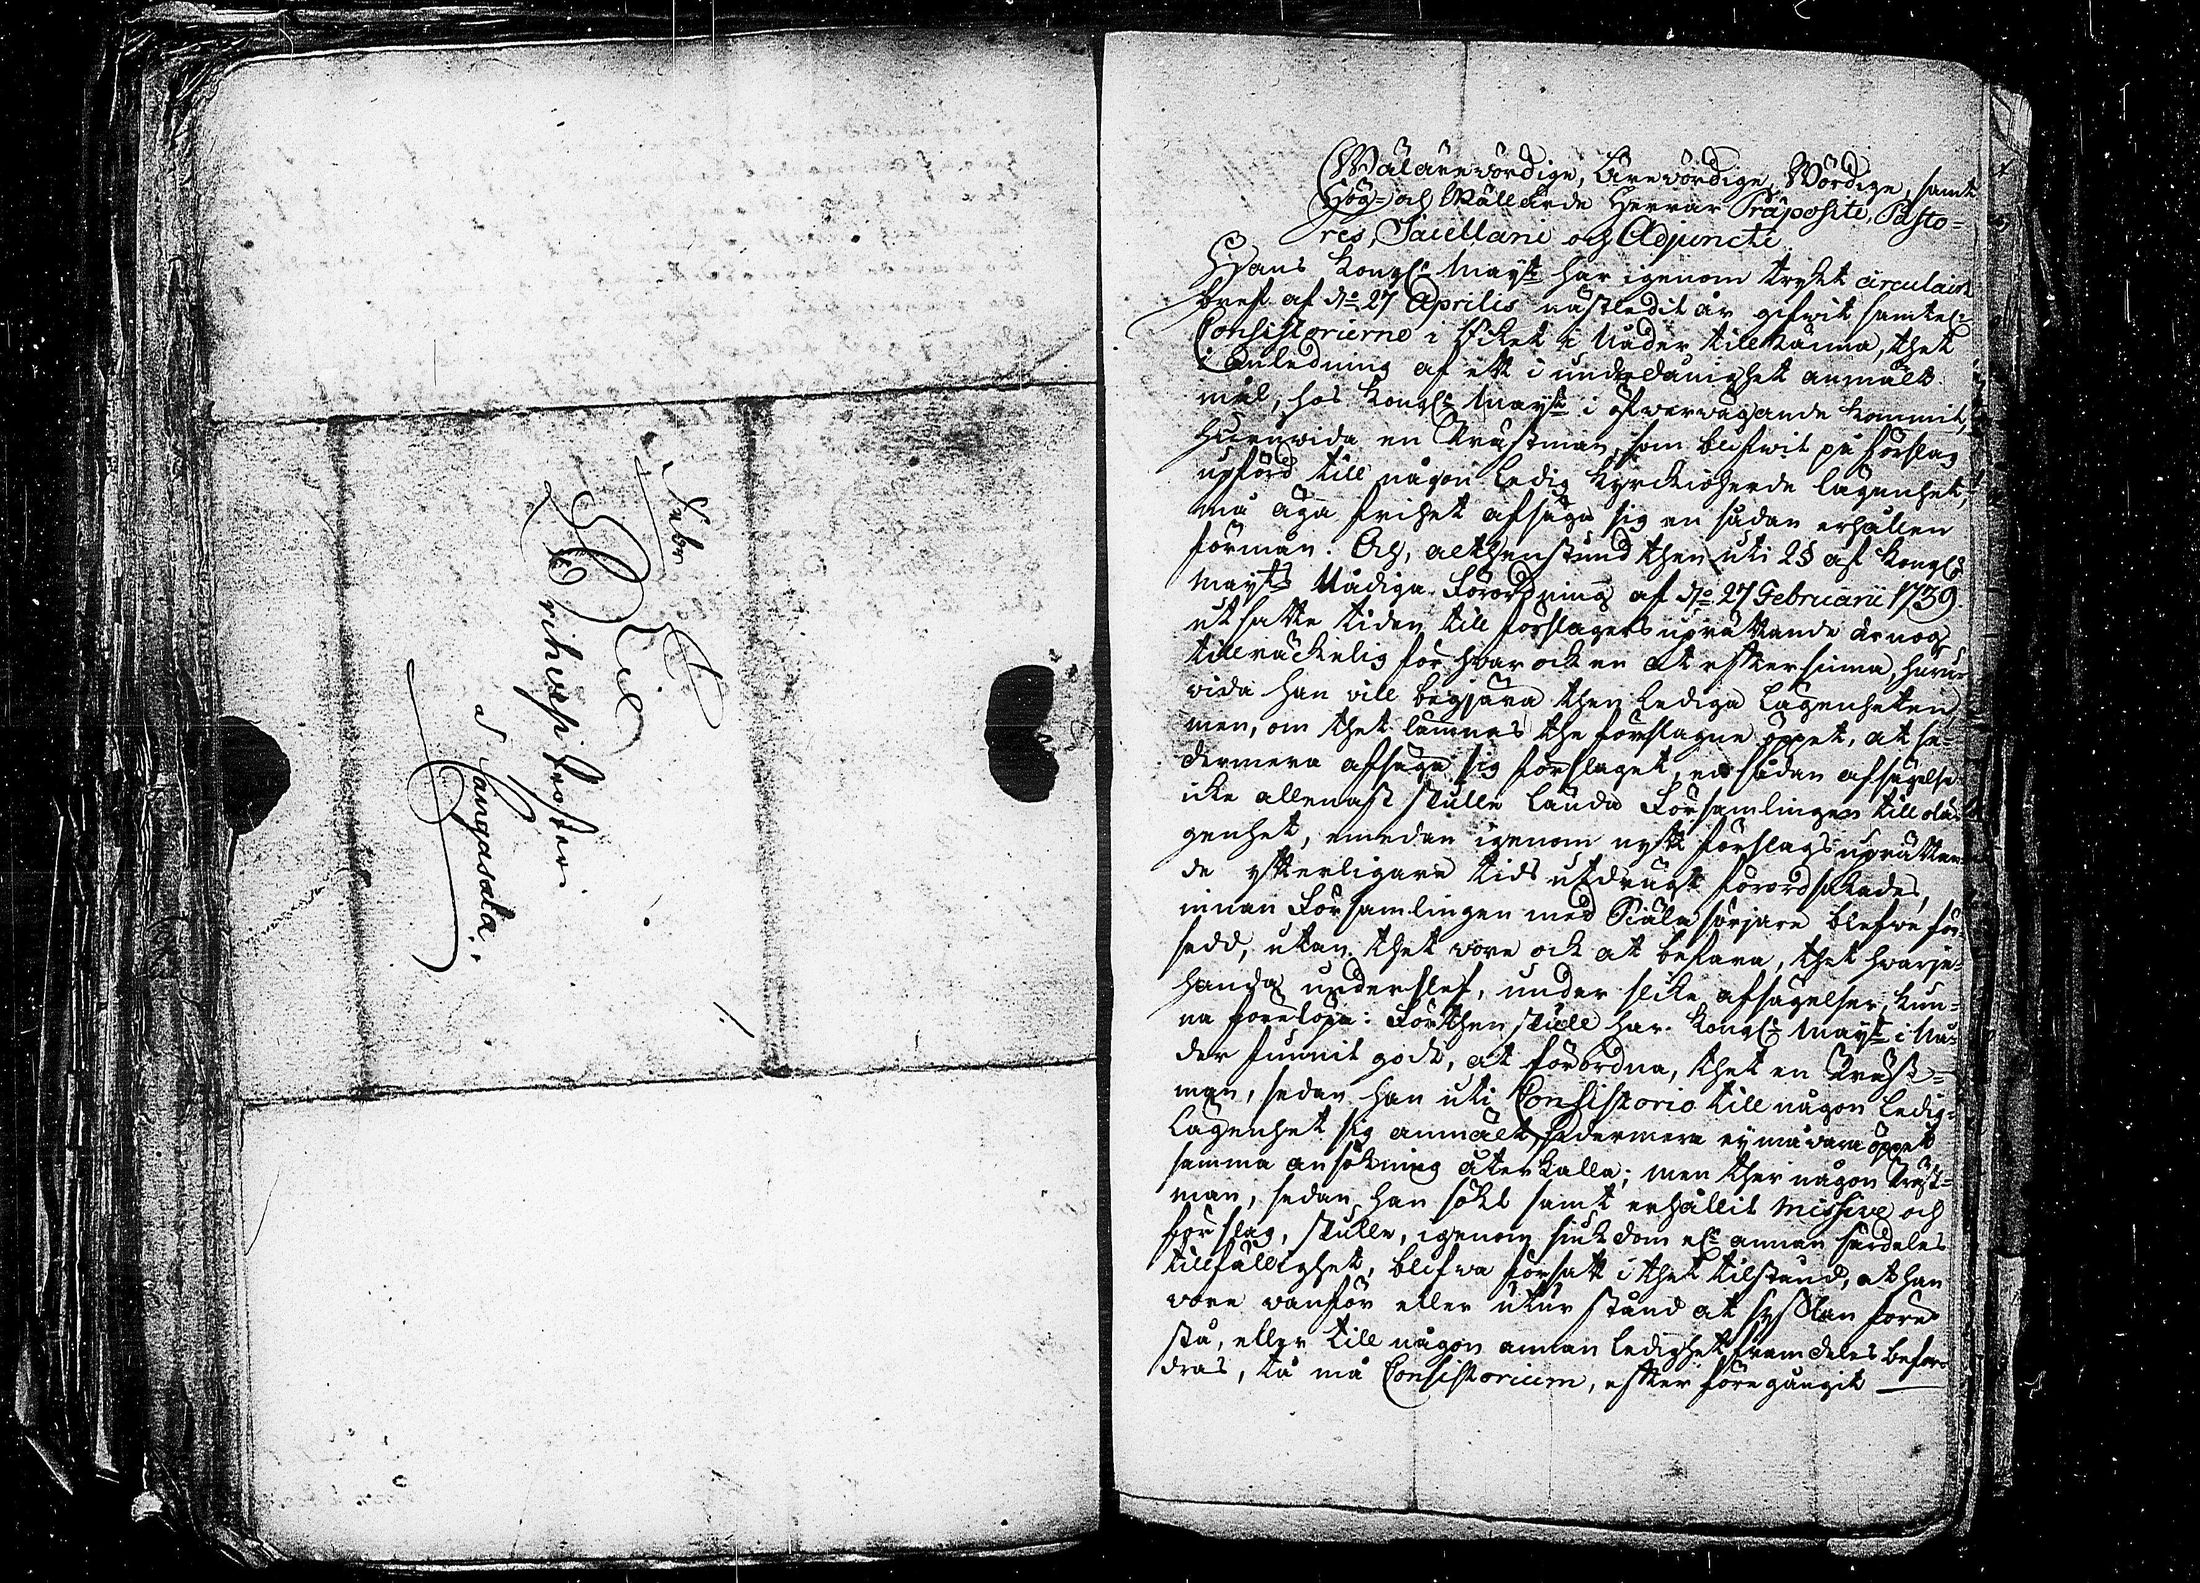 Till
Prihuusi Prosten
a Sångasala.
Wälärevördige, Ärevördige, Wördige, samt
Hög- och Wällärde Herrar Præpositi, Pasto-
res, Sacellani och Adjuncti
Hans Kongl: Mayt: har igenom tryckt circulaire
bref af d: 27 Aprilis nästledit år gifwit samtel:
Consistorierne i Riket i Nåder tillkänna, thet
i anledning af ett i underdånighet anmält
mål, hos Kongl: Mayt: i öfwervägande kommit,
huruvida en Prästman, som blifwit på förslag
upförd till någon ledig Kyrckioherde lägenhet,
må äga frihet afsäga sig en sådan erhållen
förmån. Och, aldenstund then uti 2 § af Kongl:
Mayts Nådiga Förordning af d: 27 Februarii 1739
utsatte tiden till förslagets uprättande är nog
tillräckelig för hvar och en at eftersinna, huru-
vida han vill begjära then lediga lägenheten,
men, om thet lämnas the förslagne öppet, at se-
dermera afsäga sig förslaget, en sådan afsägelse
icke allenast skulle lända Församlingen till olä-
genhet, emedan igenom nytt förslags uprättan-
de ytterligare tids utdrägt förordsakades,
innan Församlingen med Siälasörjare blefwe för-
sedd, utan thet vore ock at befara, thet hvarje-
handa underslef, under slike afsägelser, kun-
na förelöpa: Förthenskull har Kongl: Mayt: i Nå-
der funnit godt, at förordna, thet en Präst-
man, sedan han uti Consistorio till någon ledig
Lägenhet sig anmält, sedermera ey må vara öppet
samma ansökning återkalla; men ther någon Präst-
man, sedan han sökt samt erhållit Missive och
förslag, skulle, igenom siukdom el: annan särdeles
tillfällighet, blifwa försatt i thet tilstånd, at han
vore vanför eller utur stånd at sysslan före-
stå, eller till någon annan ledighet framdeles befor-
dras, tå må Consistorium, efter föregångit